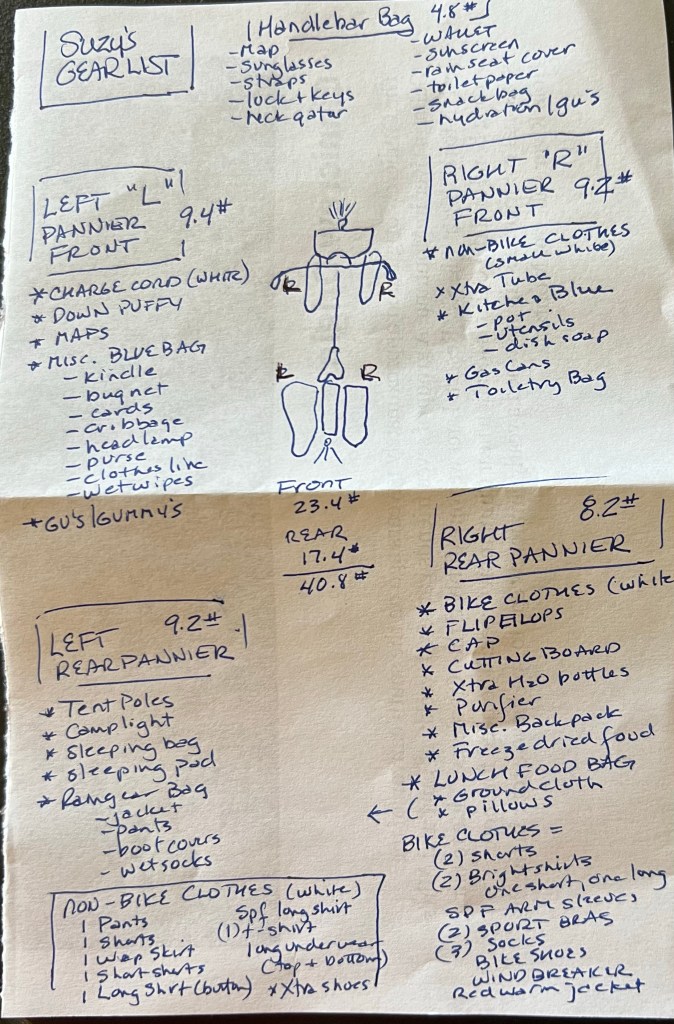 Suzy's
GEAR LIST
Handlebar Bag 4.8#
- Map
- Sunglasses
- straps
- lock + keys
- neck gator
- WALLET
- sunscreen
- rain seat cover
- toilet paper
- snack bag
- hydration / gu's
LEFT "L"
PANNIER 9.4#
FRONT
* CHARGE CORD (WHITE)
* DOWN PUFFY
* MAPS
* MISC. BLUE BAG
- Kindle
- bug net
- cards
- cribbage
- headlamp
- purse
- clothes line
- wet wipes
* GU'S / GUMMY'S
RIGHT "R"
PANNIER 9.2#
FRONT
* NON-BIKE CLOTHES
(small white)
* Xtra Tube
* Kitchen Blue
- pot
- utensils
- dish soap
* Gas Cans
* Toiletry Bag
R R
R R
FRONT
23.4#
REAR
17.4#
40.8#
LEFT 9.2#
REAR PANNIER
* Tent Poles
* Camp light
* Sleeping bag
* Sleeping pad
* Raingear Bag
- jacket
- pants
- boot covers
- wet socks
RIGHT 8.2#
REAR PANNIER
* BIKE CLOTHES (white
* FLIPFLOPS
* CAP
* CUTTING BOARD
* Xtra H2O bottles
* Purifier
* Misc. Backpack
* Freeze dried food
* LUNCH FOOD BAG
← ( * Groundcloth
* pillows
BIKE CLOTHES =
(2) Shorts
(2) Bright shirts
one short, one long
SPF ARM SLEEVES
(2) SPORT BRAS
(3) SOCKS
BIKE SHOES
WINDBREAKER
Red warm jacket
NON-BIKE CLOTHES (white)
1 Pants
1 Shorts
1 Wrap Skirt
1 Short shorts
1 Long Shirt (button)
Spf long shirt
(1) t-shirt
long underwear
(top + bottom)
* Xtra shoes